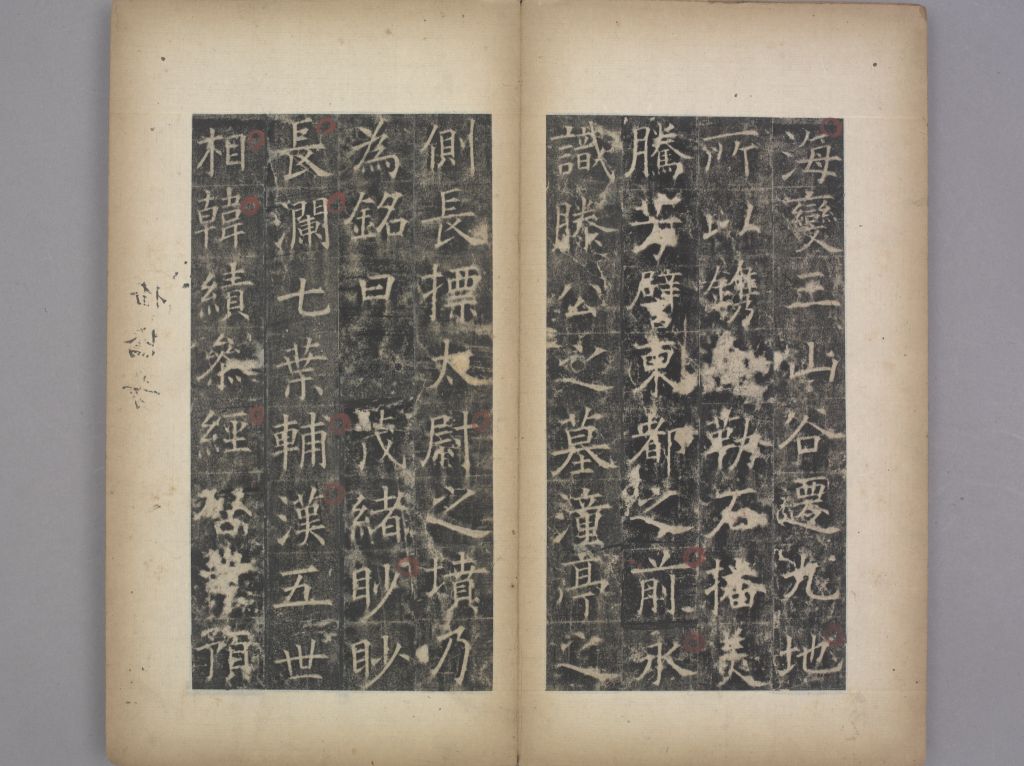 海變王山谷遷九地
所以鐫勒石播美
騰芳譬東都之前永
識滕公之墓潼亭之
側長標太尉之墳乃
為銘曰 茂緒眇眇
長瀾七葉輔漢五世
相韓績叅經預